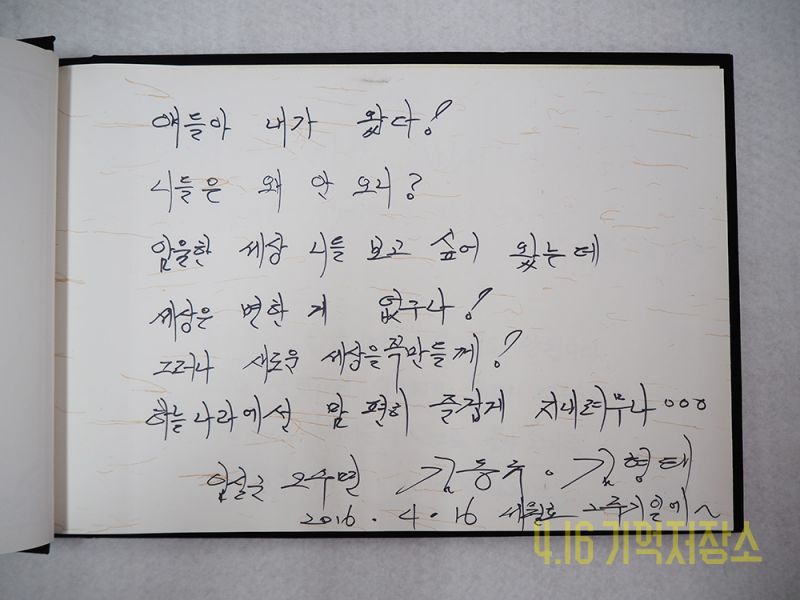 얘들아 내가 왔다!
너들은 왜 안 오니?
암울한 세상 너들 보고 싶어 왔는데
세상은 변한 게 없구나!
그러나 새로운 세상을 꼭 만들께!
하늘나라에선 맘 편히 즐겁게 지내려무나...
김동수. 김형태
2016. 4. 16 세월호 2주기일에~
4.16 기억저장소